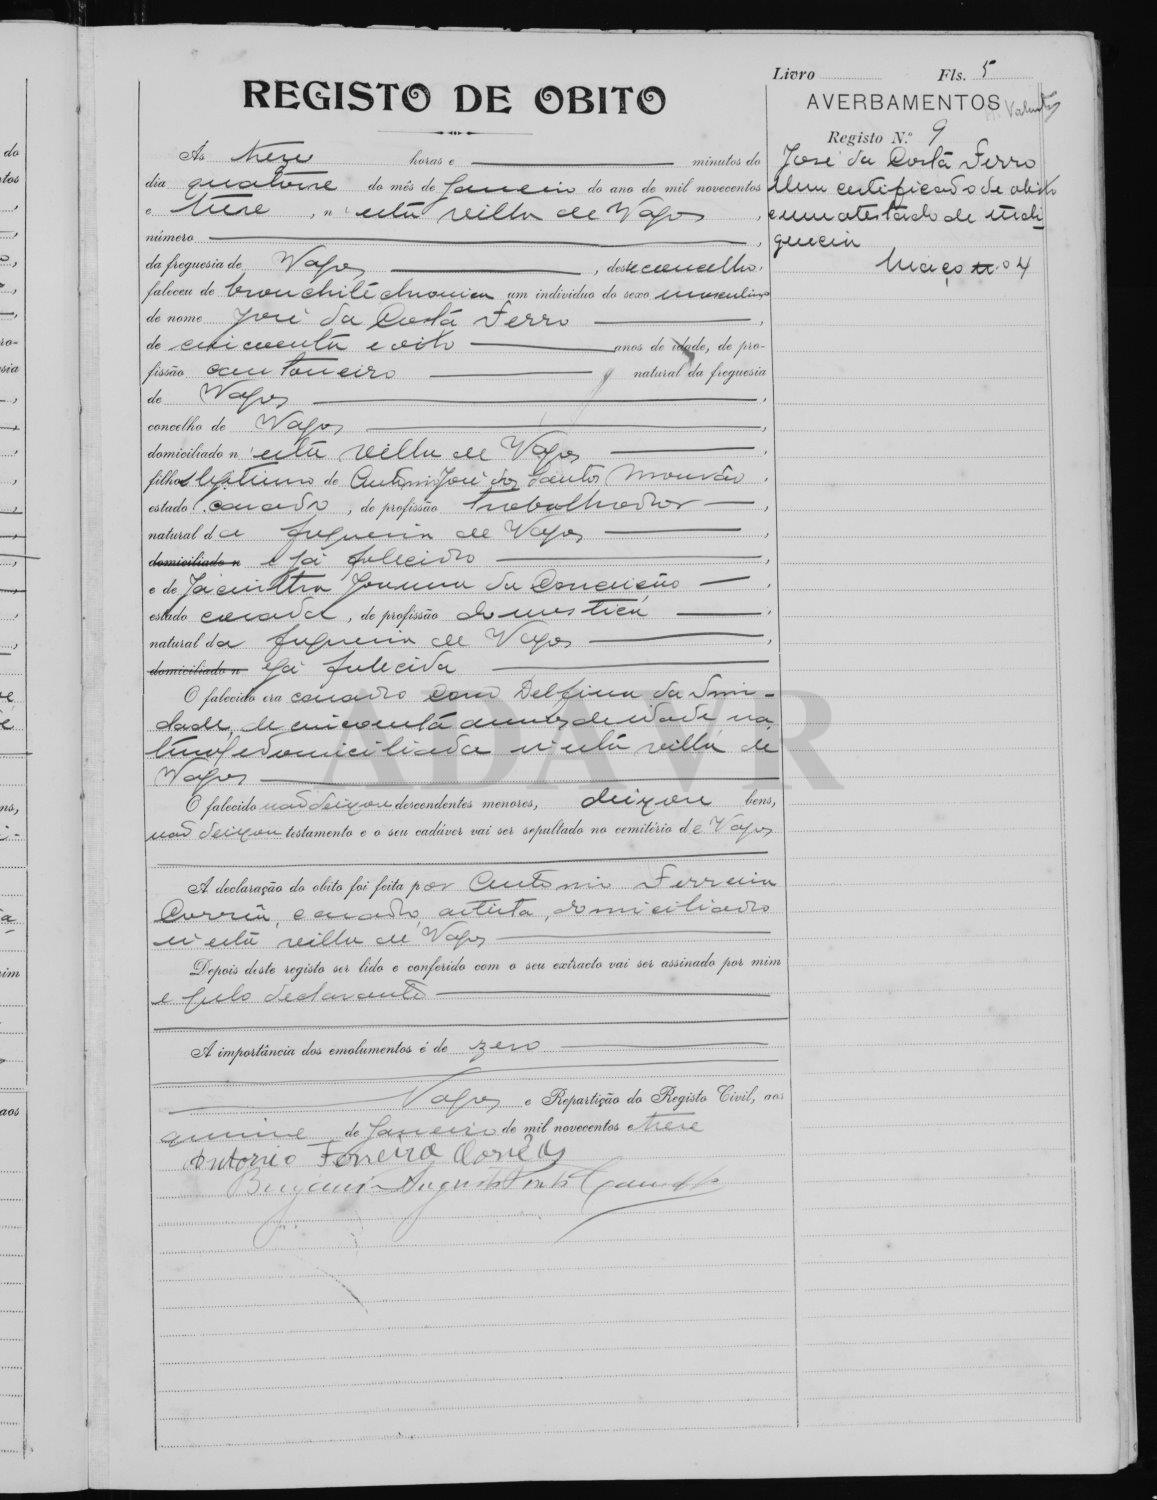 Livro Fls. 5
REGISTO DE OBITO
AVERBAMENTOS
Registo N.º 9
As treze horas e minutos do
dia quatorze do mês de Janeiro do ano de mil novecentos
e treze, n'esta villa de Vagos,
número
da freguesia de Vagos, deste concelho,
faleceu de bronchite chronica um indivíduo do sexo masculino
de nome José da Costa Ferro,
de cincoenta e oito anos de idade, de pro-
fissão cantoneiro natural da freguesia
de Vagos,
concelho de Vagos,
domiciliado n'esta villa de Vagos,
filho legitimo de Antonio José dos Santos Mourão,
estado casado, de profissão trabalhador,
natural da freguesia de Vagos,
domiciliado n e já falecido,
e de Jacintha Joanna da Conceição,
estado casada, de profissão domestica,
natural da freguesia de Vagos,
domiciliado n e já falecida
O falecido era casado com Delfina da Trin-
dade, de cincoenta annos de idade na
tural e domiciliada n'esta villa de
Vagos
O falecido não deixou descendentes menores, deixou bens,
não deixou testamento e o seu cadáver vai ser sepultado no cemitério de Vagos
A declaração do obito foi feita por Antonio Ferreira
Corrêa, casado, artista, domiciliado
n'esta villa de Vagos
Depois deste registo ser lido e conferido com o seu extracto vai ser assinado por mim
e pelo declarante
A importância dos emolumentos é de zero
Vagos e Repartição do Registo Civil, aos
quinze de Janeiro de mil novecentos e treze
Antonio Ferreira Corrêa
Augusto
José da Costa Ferro
Um certificado de obito
e um atestado de indi-
gencia
Maço n.º 4
ADAVR